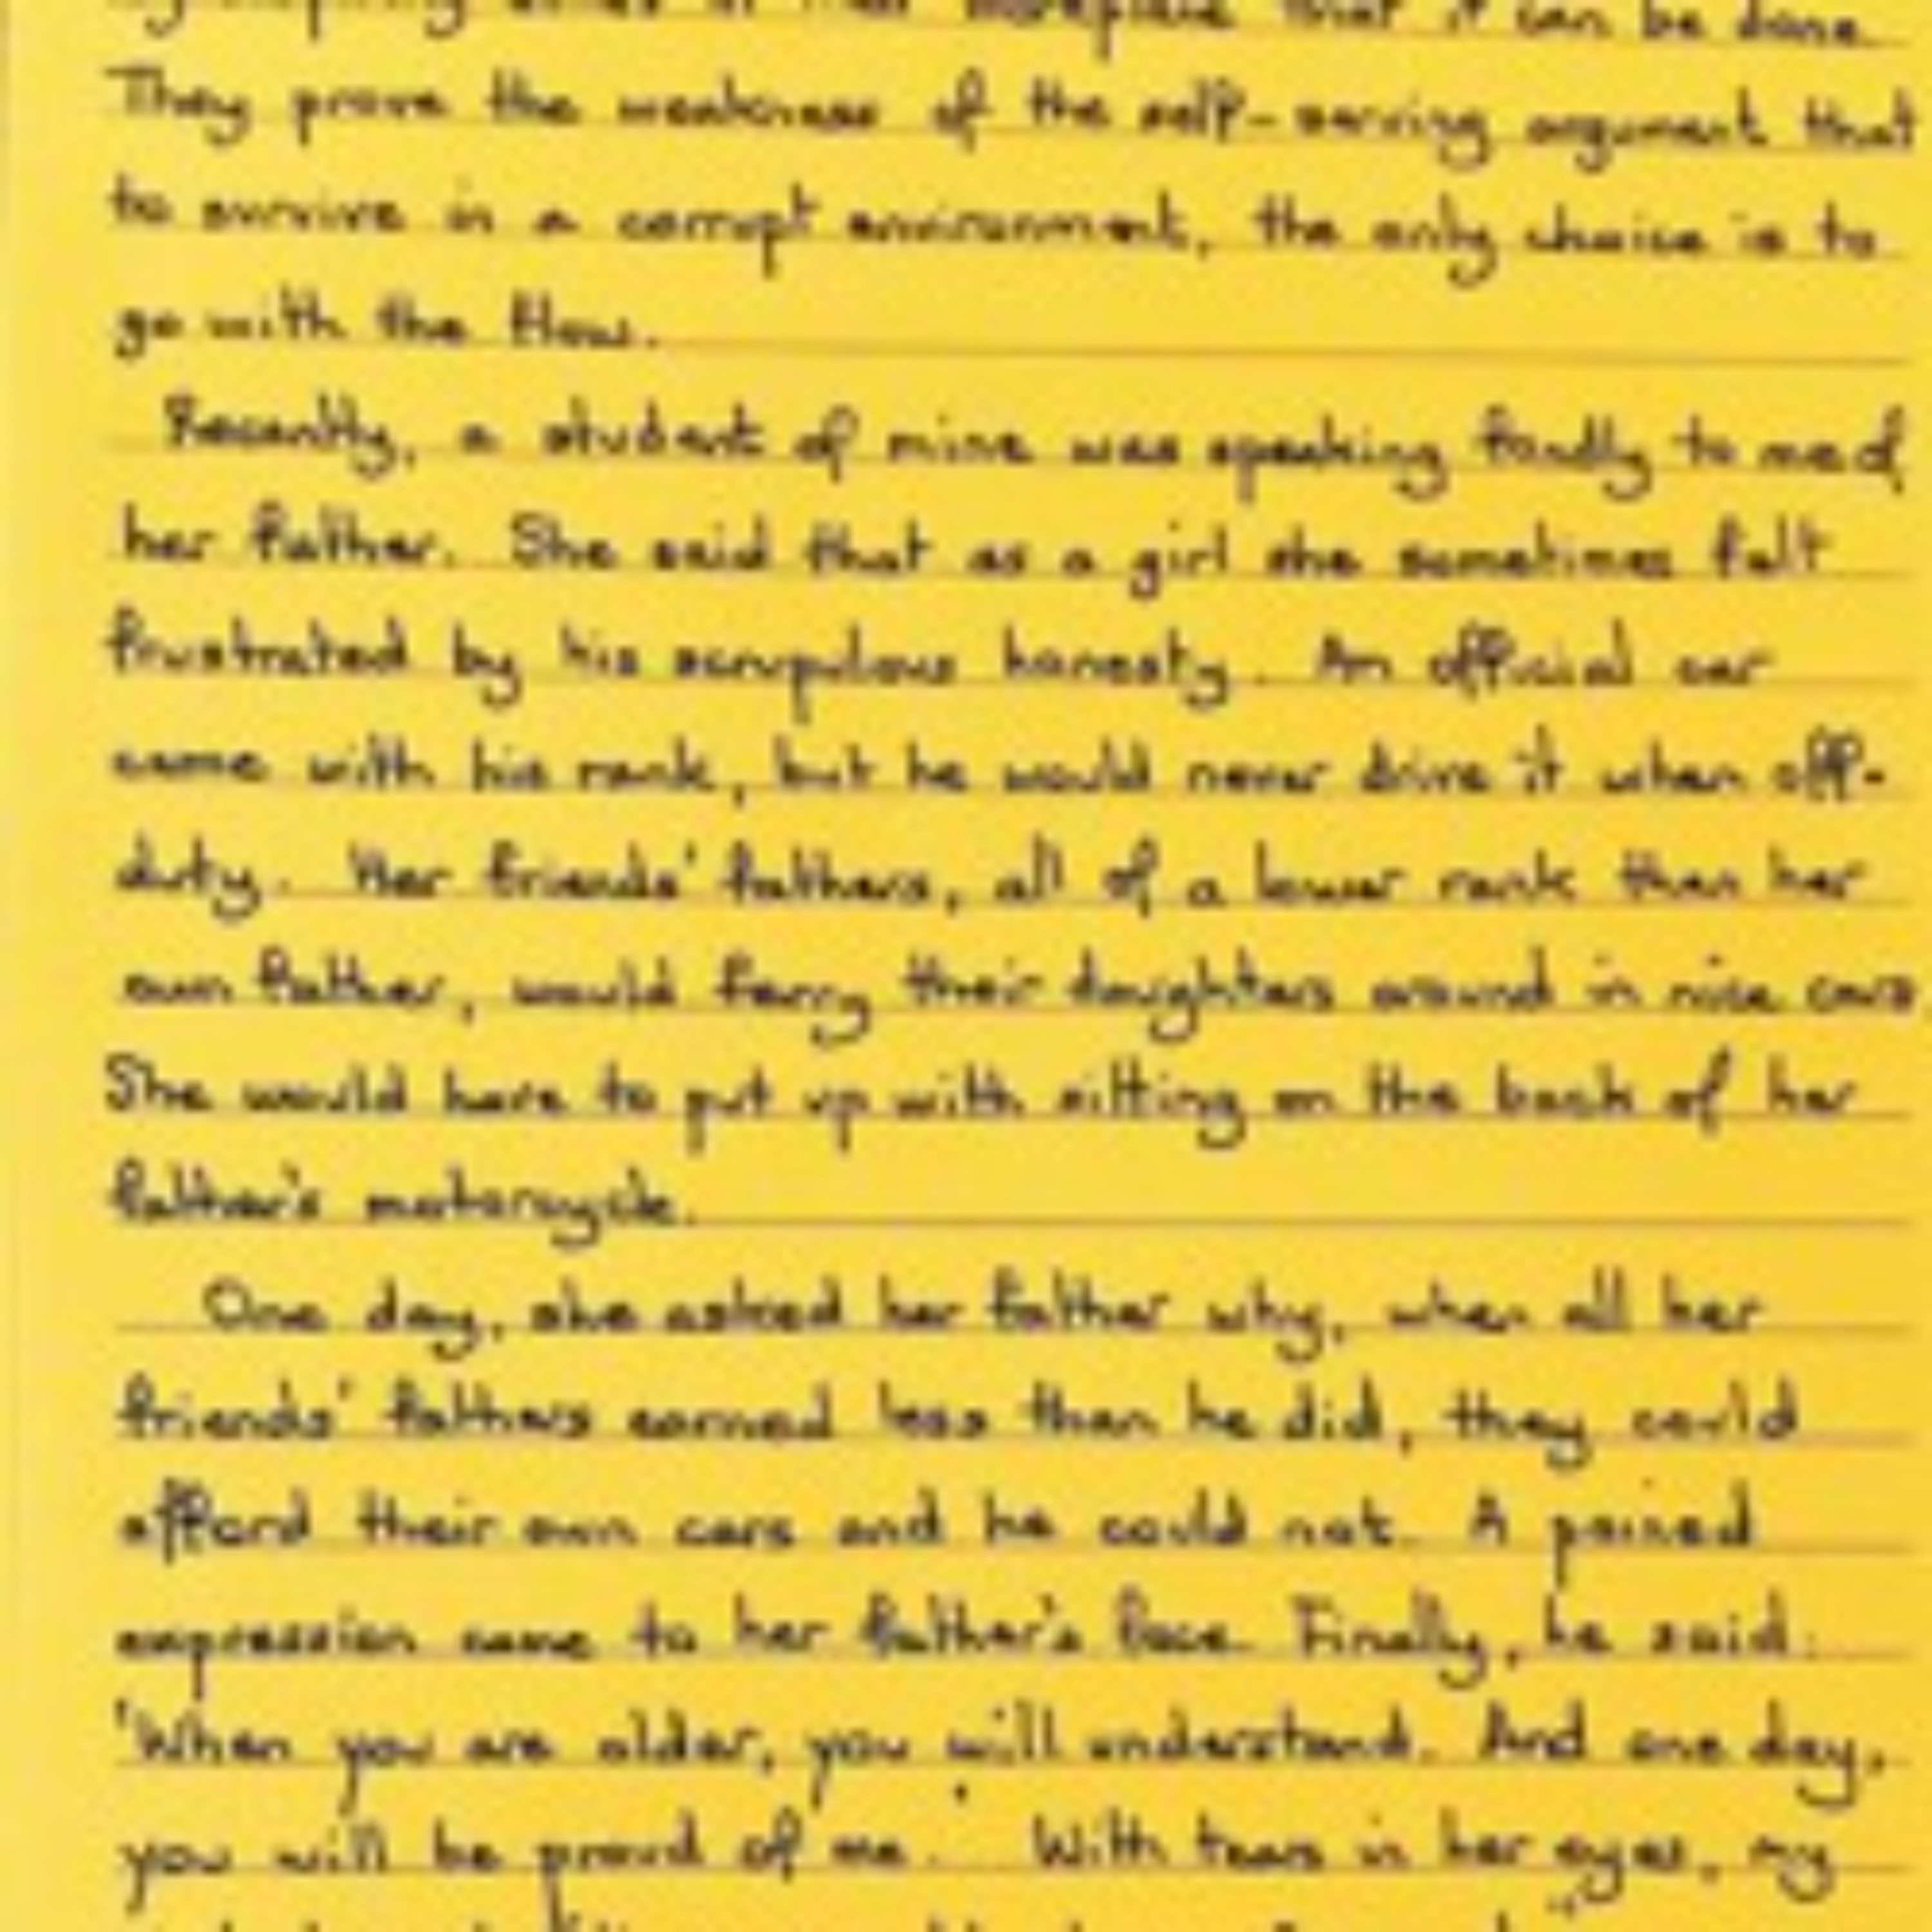 that it can be done
They prove the weakness of the self-serving argument that
to survive in a corrupt environment, the only choice is to
go with the flow.
Recently, a student of mine was speaking fondly to me of
her father. She said that as a girl she sometimes felt
frustrated by his scrupulous honesty. An official car
came with his rank, but he would never drive it when off-
duty. Her friends' fathers, all of a lower rank than her
own father, would ferry their daughters around in nice cars
She would have to put up with sitting on the back of her
father's motorcycle.
One day, she asked her father why, when all her
friends' fathers earned less than he did, they could
afford their own cars and he could not. A pained
expression came to her father's face. Finally, he said:
'When you are older, you will understand. And one day,
you will be proud of me.' With tears in her eyes, my